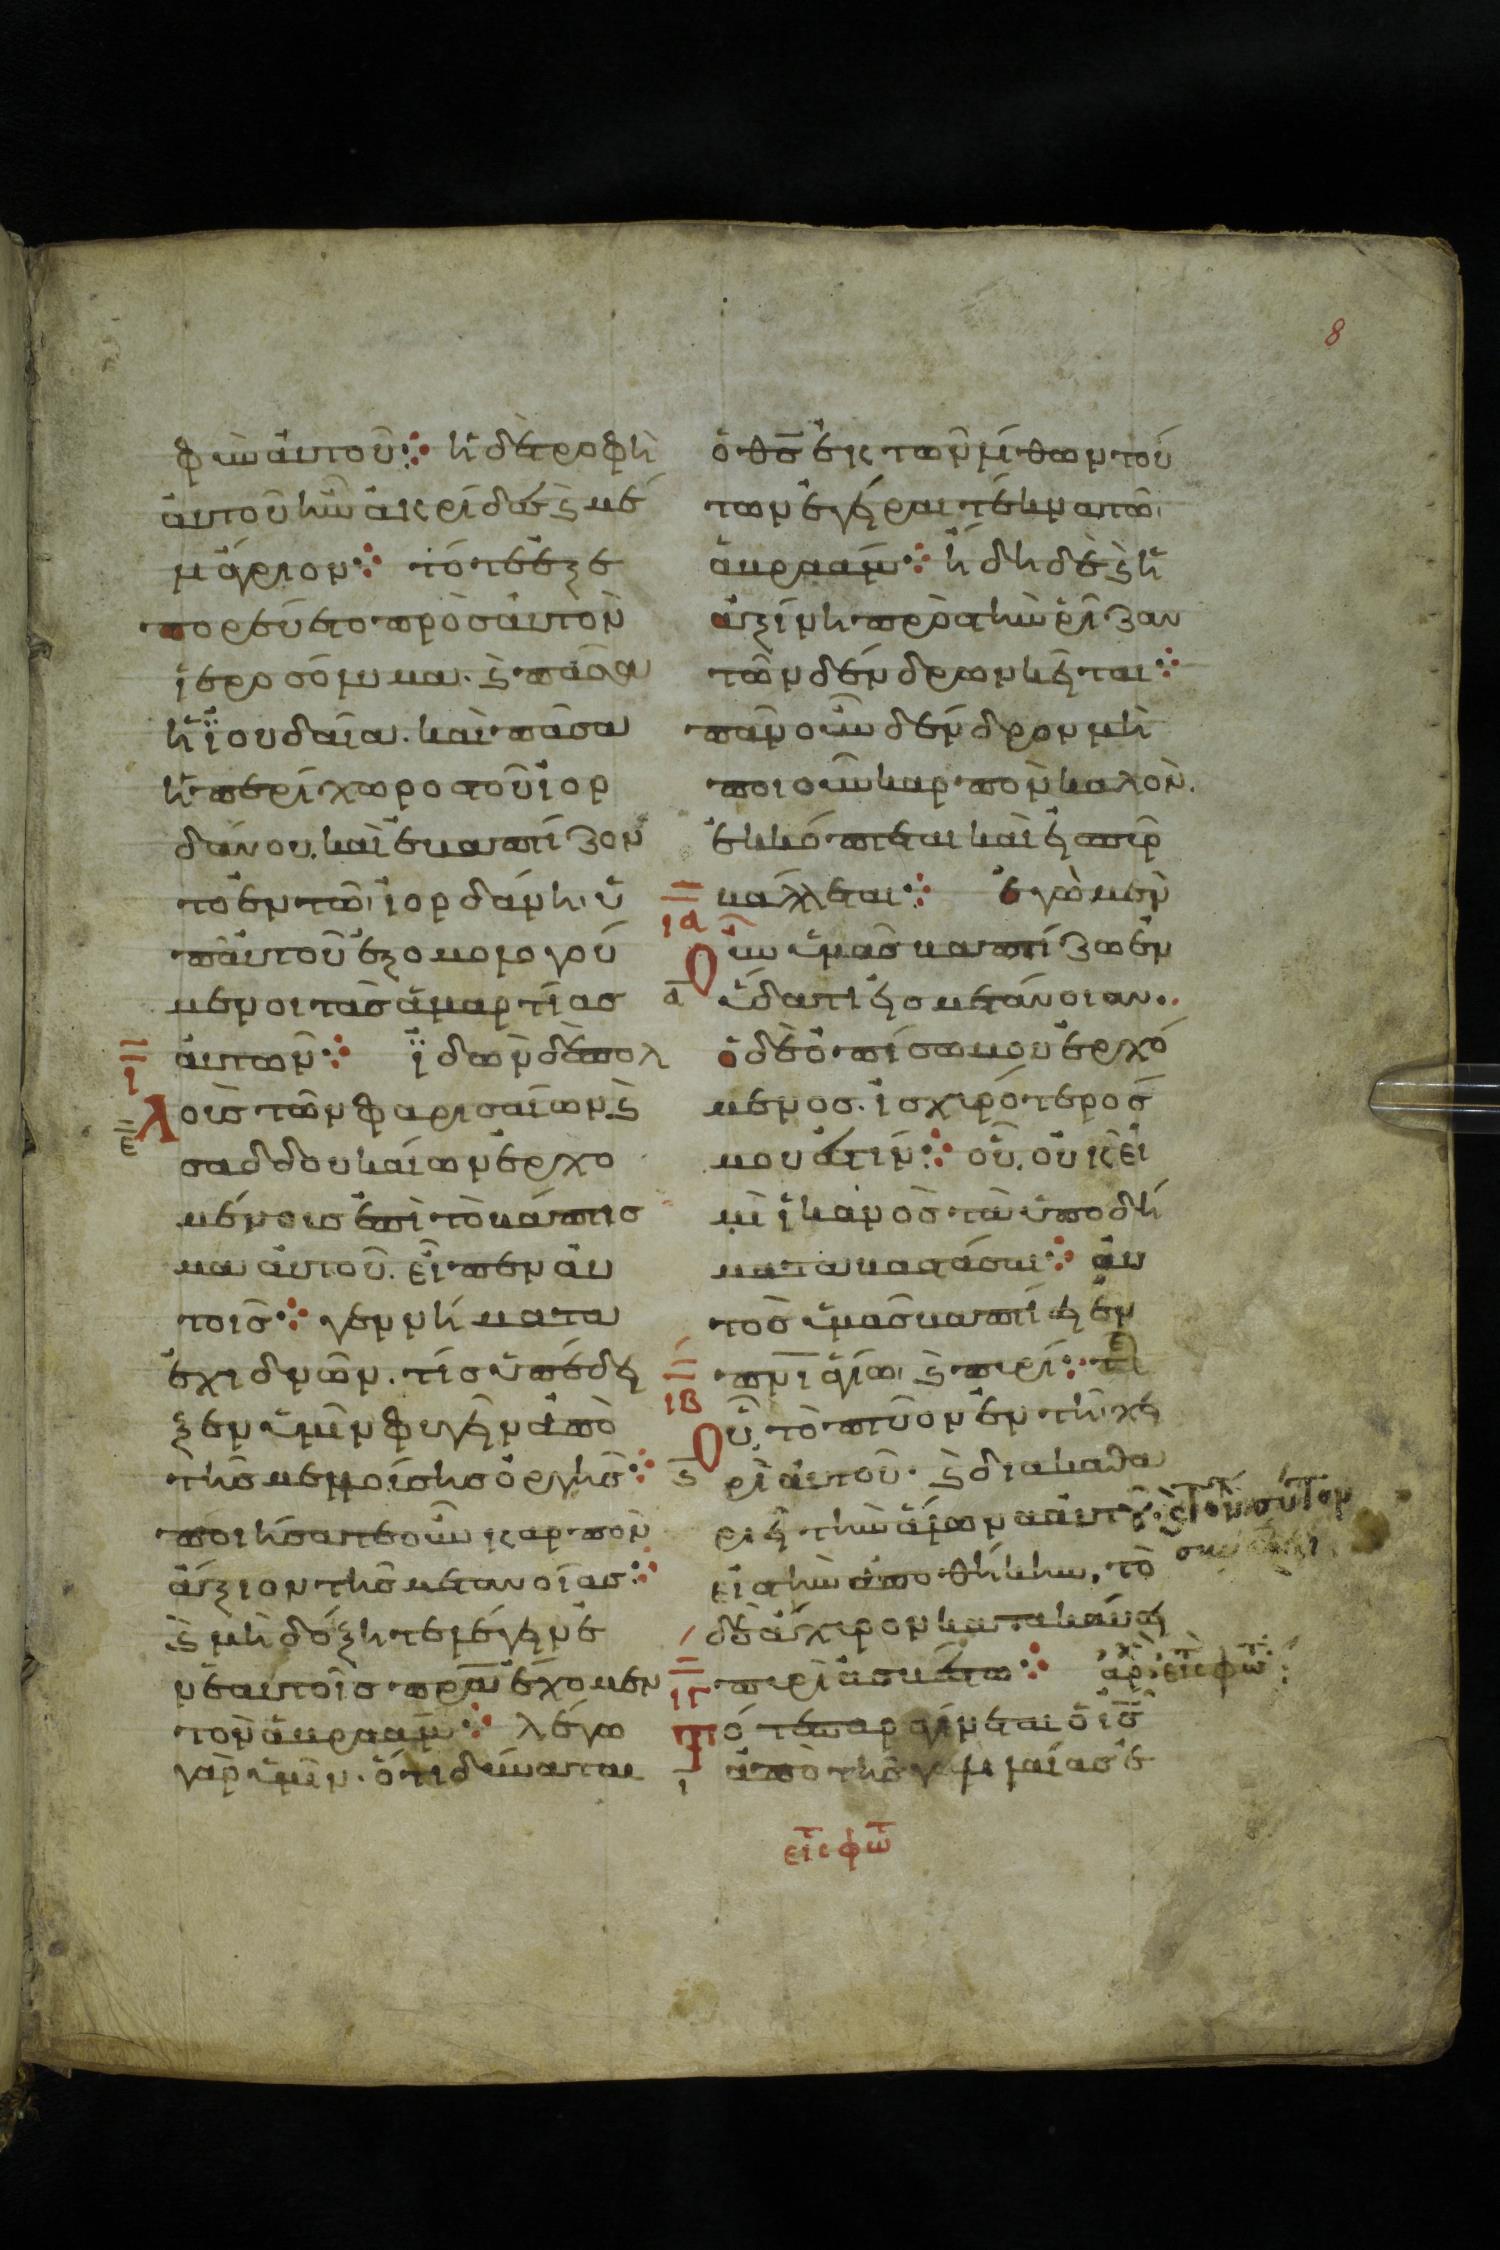 8
φὺν ἀυτοῦ ⁘ ἡ δὲ τροφὴ
ἀυτοῦ ἦν ἀκρίδες ϗ μέ
λι ἄγριον ⁘ τότε ἐξε
πορεύετο πρὸς ἀυτὸν
ἱεροσόλυμα. ϗ πᾶσα
ἡ ἰουδαῖα. καὶ πᾶσα
ἡ περίχωρος τοῦ ἰορ
δάνου. καὶ ἐβαπτίζον
το ἐν τῶ ἰορδάνη, ὑ
π' ἀυτοῦ ἐξομολογού
μενοι τὰς ἁμαρτίας
ἀυτῶν ⁘ ἰδὼν δὲ πολ
Ι
Λοὺς τῶν φαρισαίων ϗ
Ε
σαδδουκαίων ἐρχο
μένους ἐπὶ τὸ βάπτισ
μα ἀυτοῦ. εἶπεν ἀυ
τοῖς ⁘ γεννήματα
ἐχιδνῶν. τίς ὑπέδει
ξεν ὑμῖν φυγεῖν ἀπὸ
τῆς μελλούσης ὀργῆς ⁘
ποιήσατε οὖν καρπὸν
ἄξιον τῆς μετανοίας ⁘
ϗ μὴ δόξητε λέγειν ἐ
ν ἑαυτοῖς πρα ἔχομεν
τὸν ἀβραάμ ⁘ λέγω
γὰρ ὑμῖν. ὅτι δύναται
ὁ θσ ἐκ τῶν λίθων τού
των ἐγεῖραι τέκνα τῶ
ἀβραάμ ⁘ ἤδη δὲ ϗ ἡ
ἀξίνη πρὸς τὴν ῥίζαν
τῶν δένδρων κεῖται ⁘
πᾶν οὖν δένδρον μὴ
ποιοῦν καρπὸν καλὸν.
ἐκκόπτεται καὶ εἰς πῦρ
βάλλεται ⁘ ἐγὼ μὲν
ΙΑ
Οὖν ὑμᾶς βαπτίζω ἐν
Δ
ὕδατι εἰς μετάνοιαν.
ὁ δὲ ὀπίσω μου ἐρχό
μενος. ἰσχυρότερός
μου ἐστίν ⁘ οὗ, οὐκ εἰ
μὶ ἱκανὸς τὰ ὑποδή
ματα βαστάσαι ⁘ ἀυ
τὸς ὑμᾶς βαπτίσει ἐν
πνι ἁγίω ϗ πυρί ⁘
ΙΒ
Οὗ, τὸ πτύον ἐν τῆ χει
Ϛ
ρὶ ἀυτοῦ. ϗ διακαθα
ριεῖ τὴν ἅλωνα ἀυτοῦ. ϗ
εἰς τὴν ἀποθήκην, τὸ
δὲ ἄχυρον κατακαύσει
πυρὶ ἀσβέστω ⁘ ἀρχ εἰς φωτ
ΙΓ
Τότε παραγίνεται ὁ ισ
Ι
ἀπὸ τῆς γαλιλαίας ἐ
εἰς φωτ